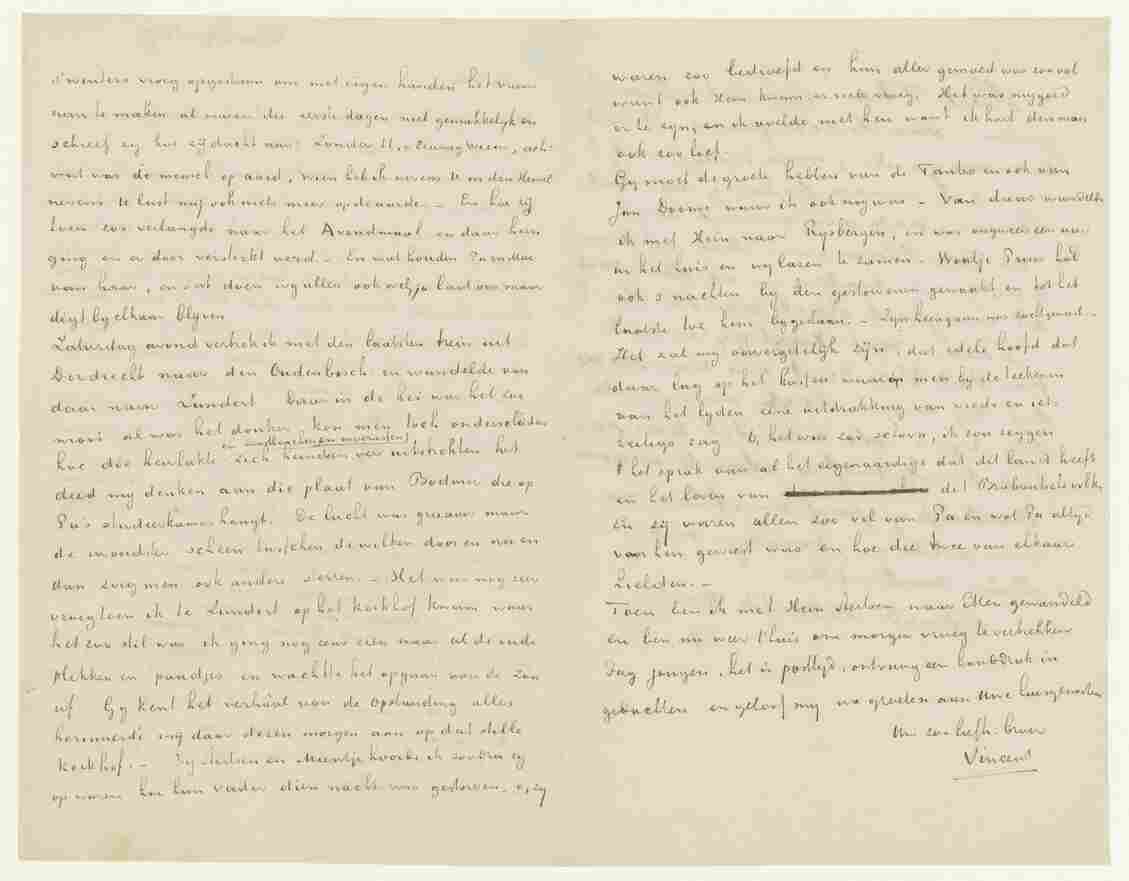 s'winters vroeg opgestaan om met eigen handen het vuur
aan te maken al waren die eerste dagen niet gemakkelijk en
schreef zij hoe zij dacht aan: Zonder U, o Eeuwig Wezen, ach
wat was de mensch op aard, wien heb ik nevens U in den Hemel
nevens U lust mij ook niets meer op de aarde. — En hoe zij
toen zoo verlangde naar het Avondmaal en daar heen
ging en er door versterkt werd. — En wat houden Pa en Moe
van haar, en dat doen wij allen ook wel, ja laat ons maar
digt by elkaar blyven
Zaturdag avond vertrok ik met den laatsten trein uit
Dordrecht naar den Oudenbosch en wandelde van
daar naar Zundert. Daar in de hei was het zoo
mooi al was het donker, kon men toch onderscheiden
hoe die hei
en moerassen
zich heinde en ver uitstrekten het
deed my denken aan die plaat van Bodmer die op
Pa's studeerkamer hangt. De lucht was graauw maar
de avondster scheen tusschen de wolken door en nu en
dan zag men ook andere sterren. — Het was nog zeer
vroeg toen ik te Zundert op het kerkhof kwam waar
het zoo stil was ik ging nog eens zien naar al de oude
plekken en paadjes en wachtte het opgaan van de Zon
af Gy kent het verhaal van de Opstanding alles
herinnerde mij daar dezen morgen aan op dat stille
kerkhof. — By Aertsen en Mientje hoorde ik zoodra zij
op waren hoe hun vader dien nacht was gestorven, o, zij
waren zoo bedroefd en hun aller gemoed was zoo vol
want ook Hein kwam er reeds vroeg. Het was mij goed
er te zijn, en ik voelde met hen want ik had den man
ook zoo lief.
Gy moet de groete hebben van de Tantes en ook van
Jan Doome waar ik ook nog was — Van daar wandelde
ik met Hein naar Rysbergen, en was ongeveer een uur
in het huis en wij lazen te zamen. — Woutje Prins had
ook 3 nachten by den gestorvenen gewaakt en tot het
laatste toe hem bygestaan. — Zyn heengaan was zachtzinnig —
Het zal my onvergetelijk zijn, dat edele hoofd dat
daar lag op het kussen waarop men by de teekenen
van het lyden eene uitdrukking van vrede en iets
heiligs zag O, het was zoo schoon, ik zou zeggen
't het sprak van al het eigenaardige dat dit land heeft
en het leven van dit Brabantsch volk,
En zij waren allen zoo vol van Pa en wat Pa altyd
voor hen geweest was en hoe die twee van elkaar
hielden. —
Toen ben ik met Hein Aertsen naar Etten gewandeld
en ben nu weer t'huis om morgen vroeg te vertrekken
Dag jongen, het is posttyd, ontvang een handdruk in
gedachten en geloof my na groeten aan Uwe huisgenooten
Uw zoo liefh. broer
Vincent